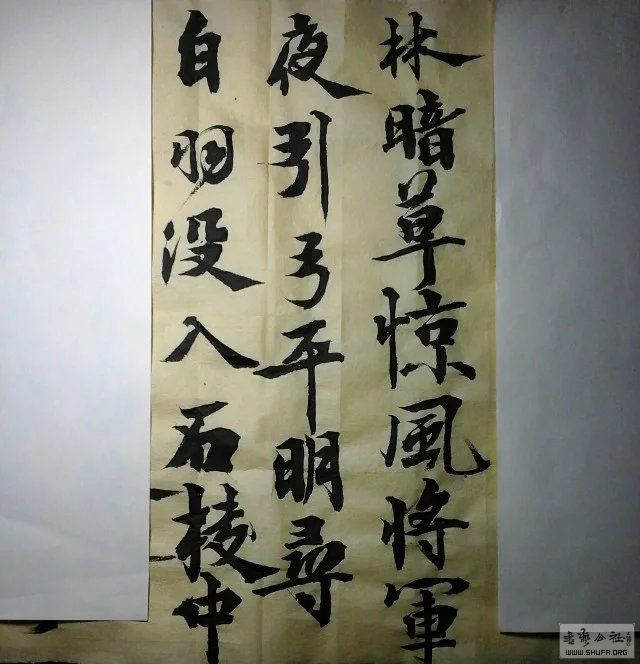 林暗草惊風將軍
夜引弓平明尋
白羽没入石棱中
WWW.SHUFA.ORG